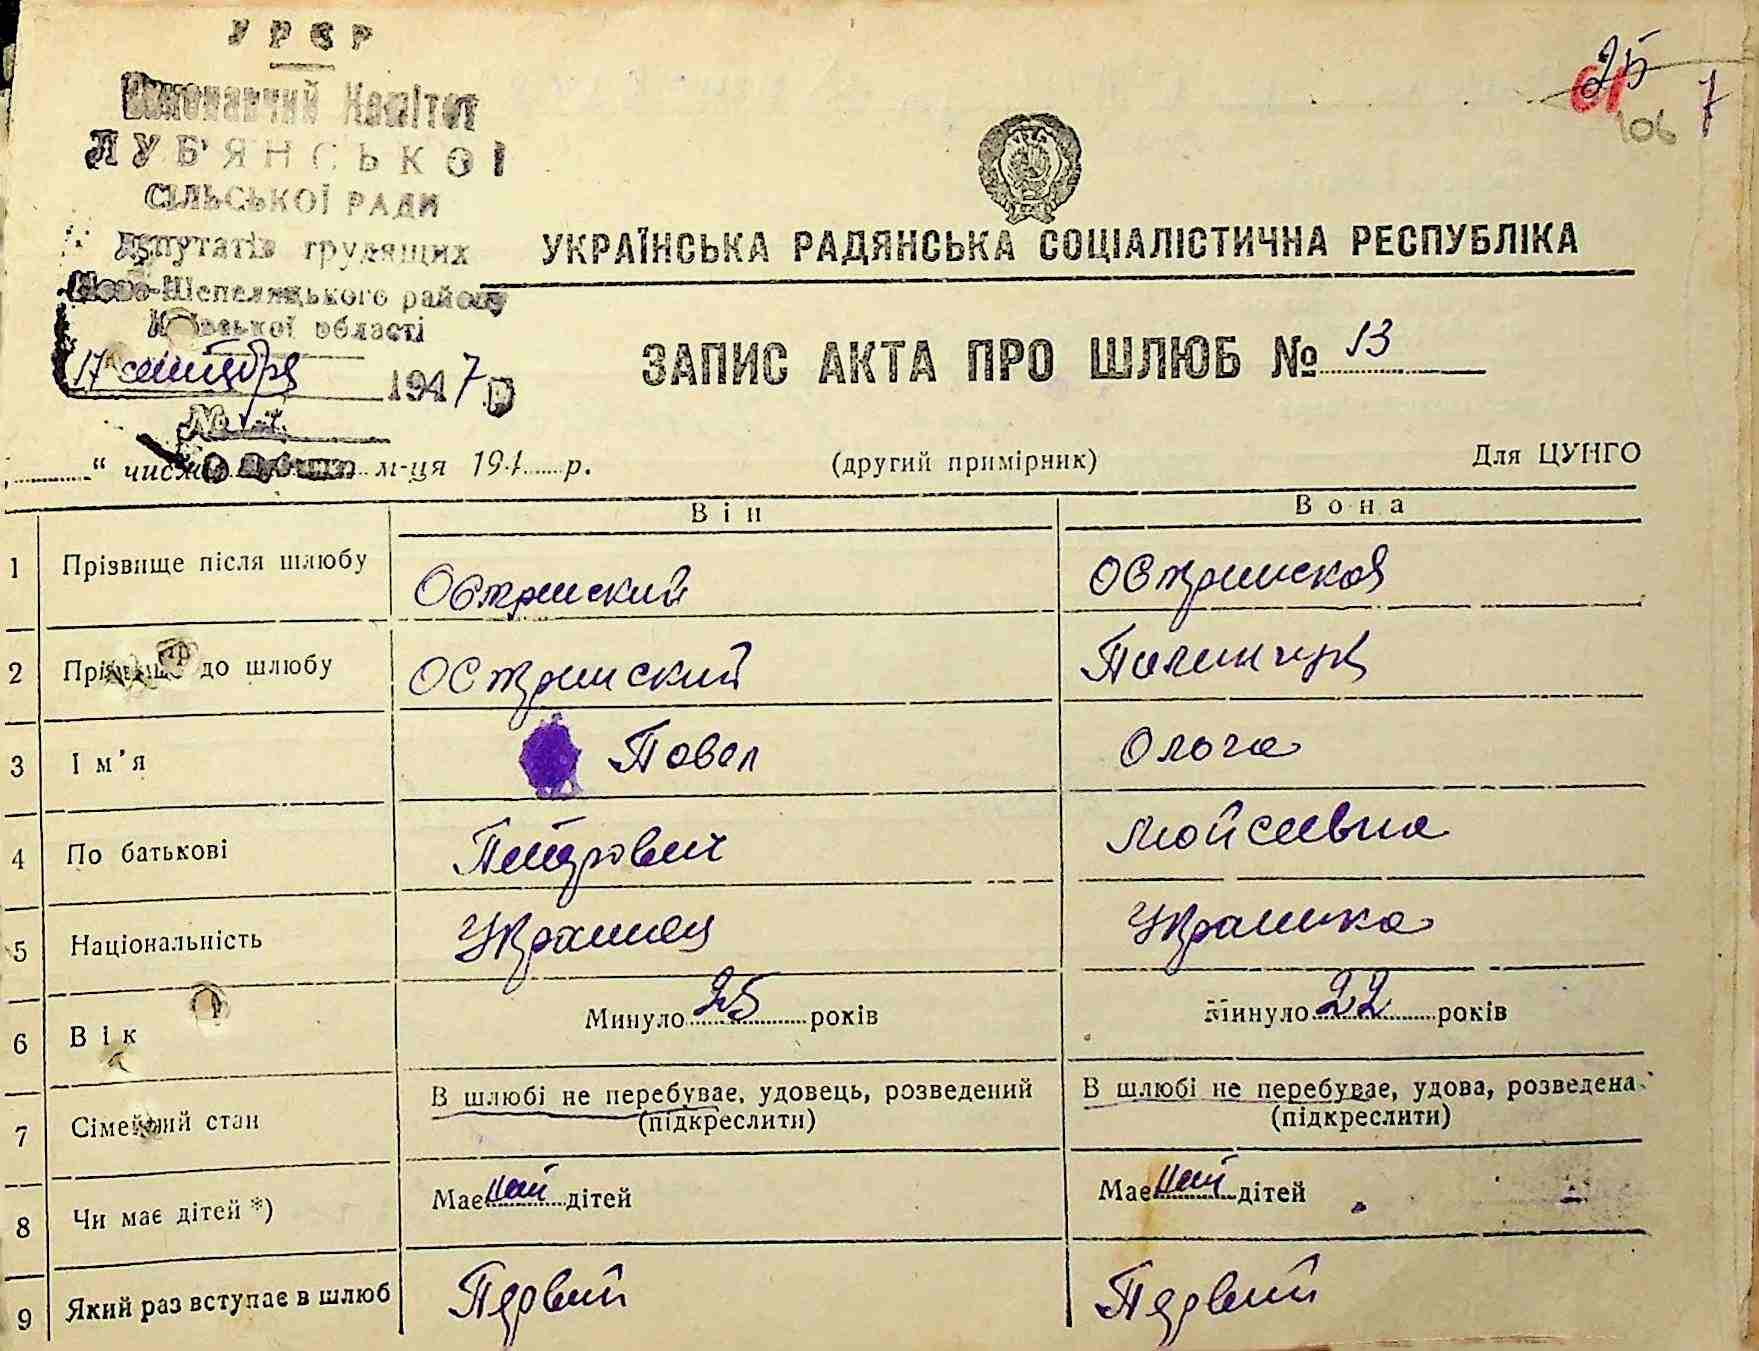 УРСР
Виконавчий Комітет
ЛУБ'ЯНСЬКОЇ
СІЛЬСЬКОЇ РАДИ
депутатів трудящих
Ново-Шепелицького району
Київської області
17 сентября 1947 р
№
25
61
106
7
УКРАЇНСЬКА РАДЯНСЬКА СОЦІАЛІСТИЧНА РЕСПУБЛІКА
ЗАПИС АКТА ПРО ШЛЮБ № 13
“ числа м-ця 194 р.
(другий примірник)
Для ЦУНГО
Він Вона
1 Прізвище після шлюбу Остринский Остринская
2 Прізвище до шлюбу Остринский
3 Ім'я Павел Ольга
4 По батькові Петрович Мойсеевна
5 Національність Украинец Украинка
6 Вік Минуло 25 років Минуло 22 років
7 Сімейний стан В шлюбі не перебуває, удовець, розведений В шлюбі не перебуває, удова, розведена
(підкреслити) (підкреслити)
8 Чи має дітей *) Має нет дітей Має нет дітей
9 Який раз вступає в шлюб Первий Первий